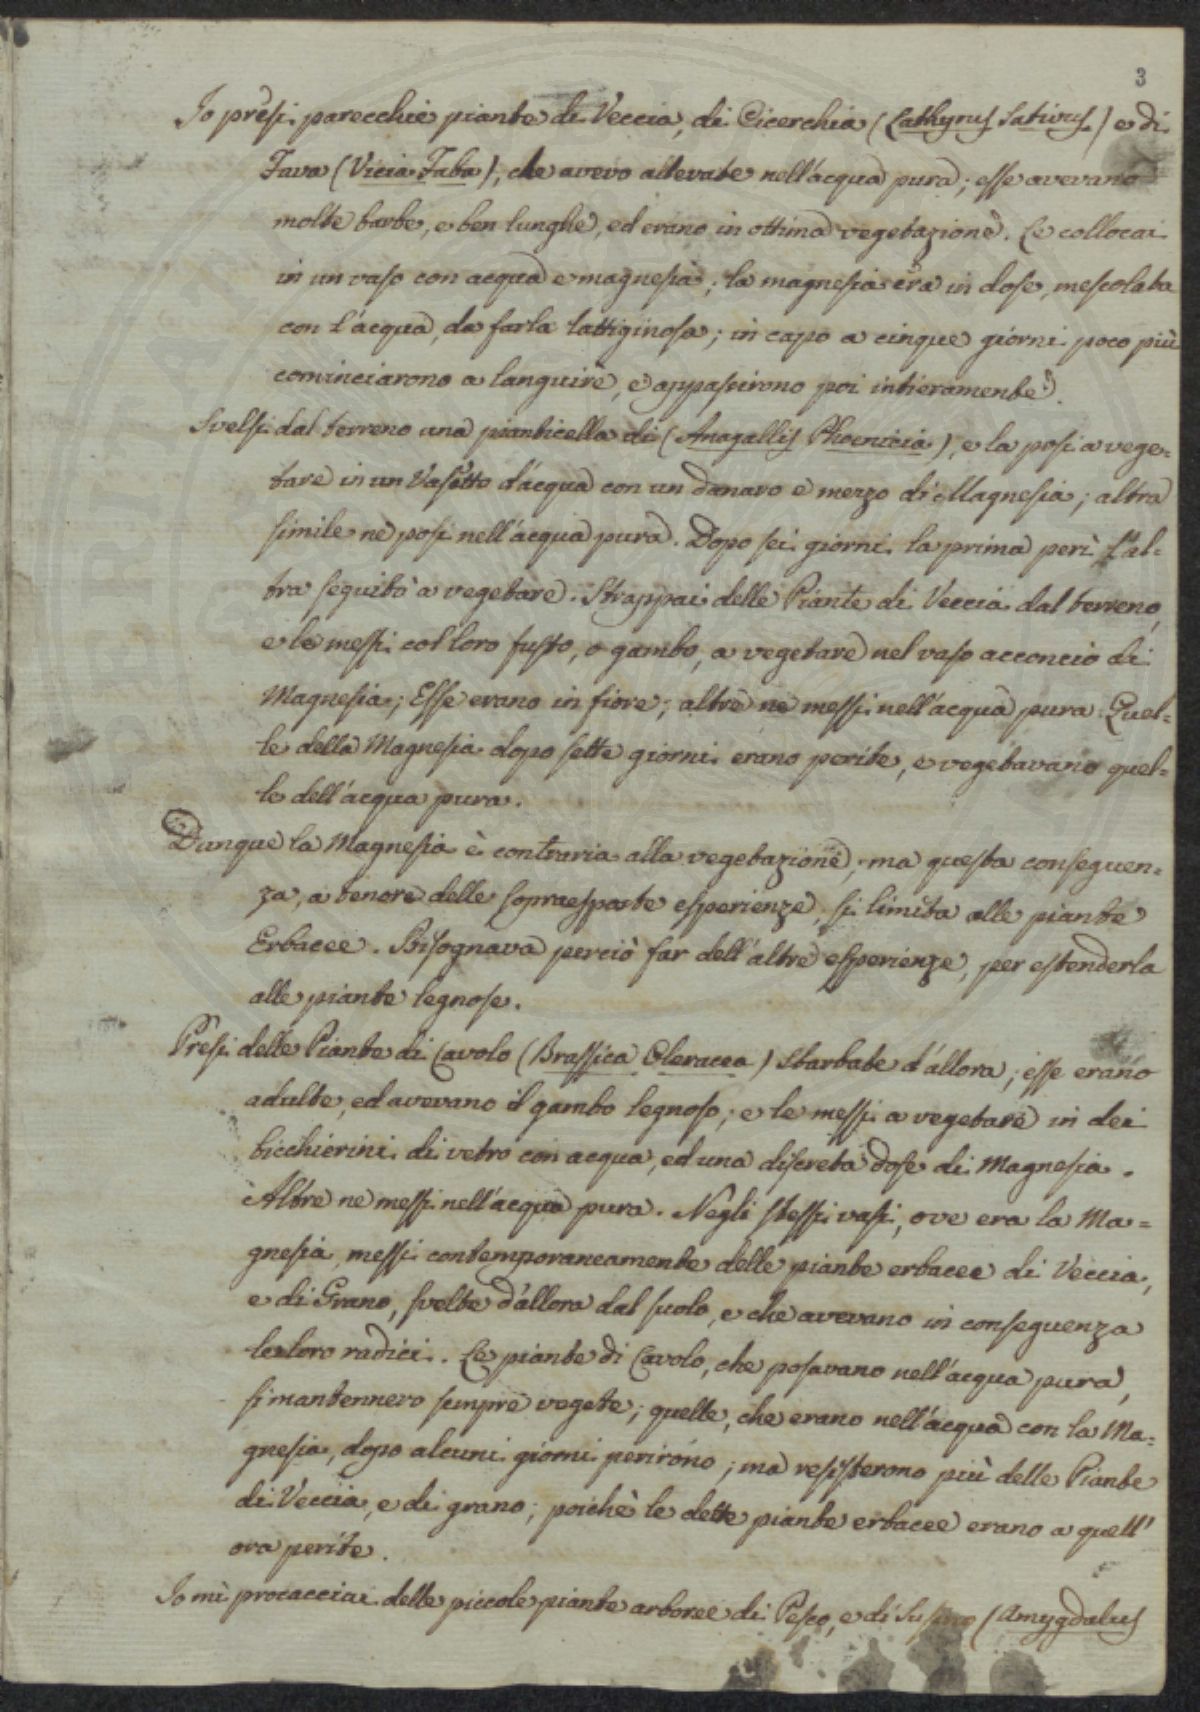 3
Io presi parecchie piante di Veccia, di Cicerchia (Lathyrus Sativus) e di
Fava (Vicia Faba), che avevo allevate nell'acqua pura; esse avevano
molte barbe, e ben lunghe, ed erano in ottima vegetazione. Le collocai
in un vaso con acqua e magnesia; la magnesia era in dose, mescolata
con l'acqua, da farla lattiginosa; in capo a cinque giorni poco più
cominciarono a languire, e appassirono poi intieramente.
Svelsi dal terreno una pianticella di (Anagallis Phoenicia), e la posi a vege=
tare in un Vasetto d'acqua con un danaro e mezzo di Magnesia; altra
simile ne posi nell'acqua pura. Dopo sei giorni la prima perì l'al=
tra seguitò a vegetare. Strappai delle Piante di Veccia dal terreno,
e le messi col loro fusto, o gambo, a vegetare nel vaso acconcio di
Magnesia; Esse erano in fiore; altre ne messi nell'acqua pura. Quel=
le della Magnesia dopo sette giorni erano perite, e vegetavano quel=
le dell'acqua pura.
Dunque la Magnesia è contraria alla vegetazione; ma questa conseguen=
za, a tenore delle sopraesposte esperienze, si limita alle piante
Erbacee. Bisognava perciò far dell'altre esperienze, per estenderla
alle piante legnose.
Presi delle Piante di Cavolo (Brassica Oleracea) sbarbate d'allora; esse erano
adulte, ed avevano il gambo legnoso; e le messi a vegetare in dei
bicchierini di vetro con acqua, ed una discreta dose di Magnesia.
Altre ne messi nell'acqua pura. Negli stessi vasi, ove era la Ma=
gnesia, messi contemporaneamente delle piante erbacee di Veccia,
e di Grano, svelte d'allora dal suolo, e che avevano in conseguenza
le loro radici. Le piante di Cavolo, che posavano nell'acqua pura,
si mantennero sempre vegete; quelle, che erano nell'acqua con la Ma=
gnesia, dopo alcuni giorni perirono; ma resisterono più delle Piante
di Veccia, e di grano; poichè le dette piante erbacee erano a quell'
ora perite.
Io mi procacciai delle piccole piante arboree di Pesco, e di Susino (Amygdalus